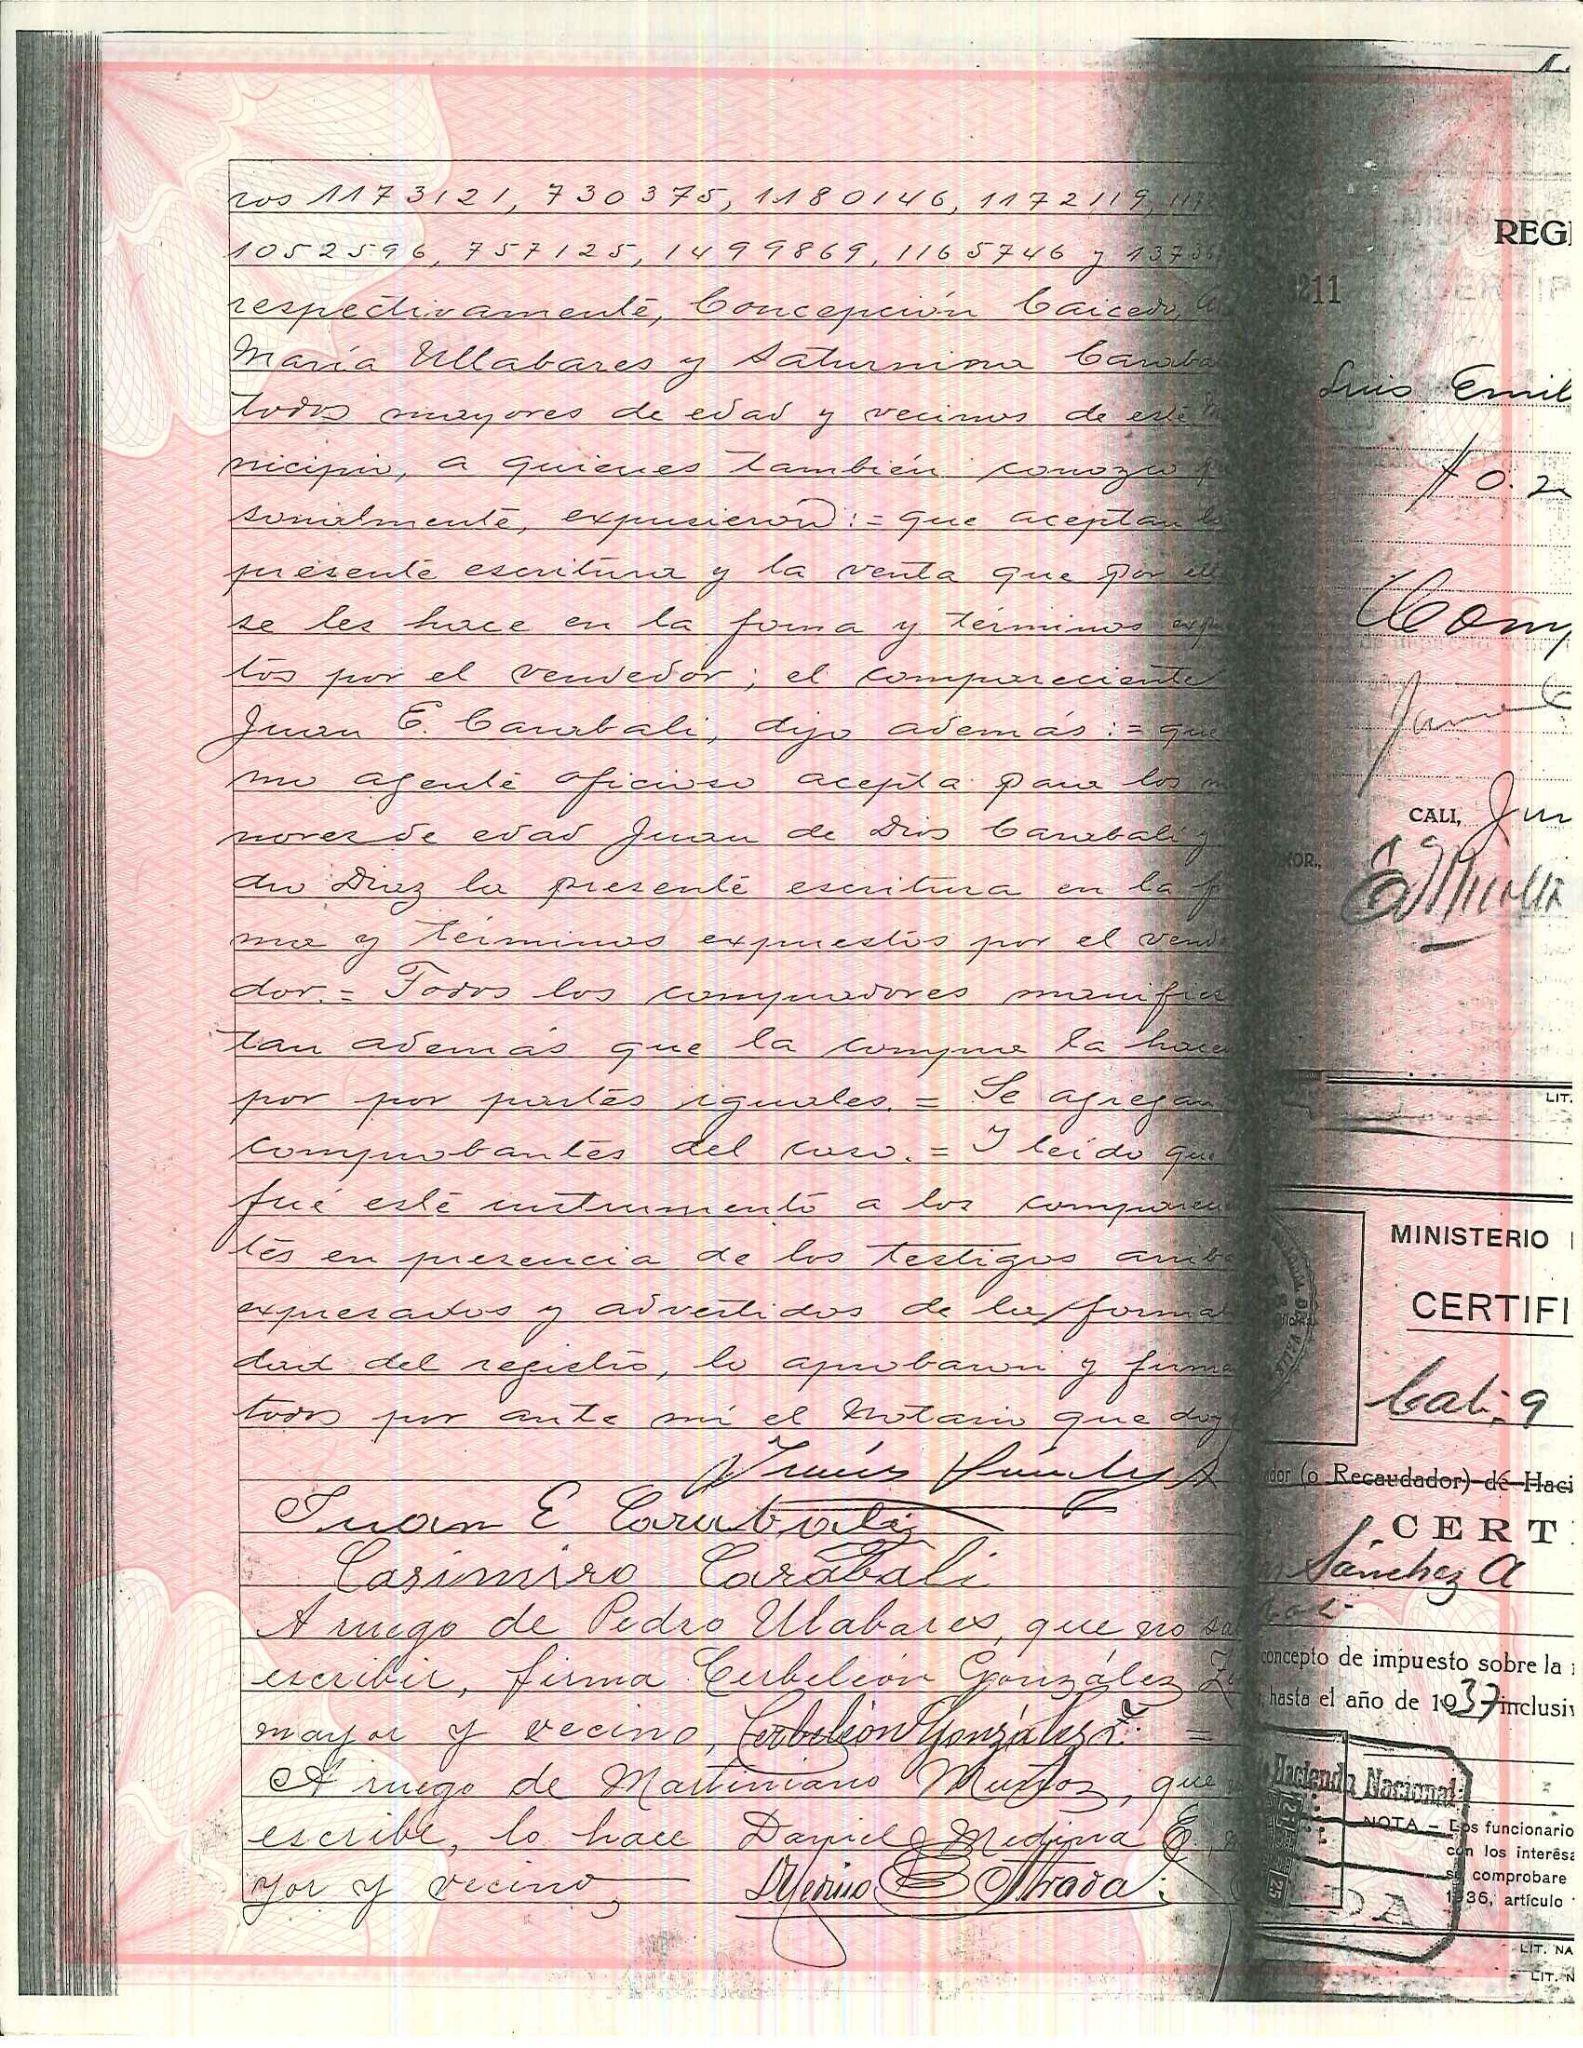 ros 1173121, 730375, 1180146, 1172119,
1052596, 757125, 1499869, 1165746 y
respectivamente, Concepción Caicedo,
María Ullabares y Saturnina
todos mayores de edad y vecinos de este
nicipio, a quienes también conozco
sonalmente, expusieron := que aceptan
presente escritura y la venta que por
se les hace en la forma y términos
tos por el vendedor; el compareciente
Juan E. Carabali, dijo además := que
mo agente oficioso acepta para los
nores de edad Juan de Dios Carabali y
dio Diaz la presente escritura en la
ma y términos expuestos por el
dor. = Todos los compradores manifies
tan además que la compra la hacen
por por partes iguales. = Se agregan
comprobantes del caso. = I leído que
fué este instrumento a los
tes en presencia de los testigos
expresados y advertidos de la
dad del registro, lo aprobaron y
todos por ante mí el Notario que doy
Juan E Carabali
Casimiro Carabali
A ruego de Pedro Ulabares, que no
escribir, firma Cerbeleón González
mayor y vecino, Cerbeleón González Z. =
A ruego de Martiniano Muñoz, que
escribe, lo hace Daniel Medina E.
yor y vecino,
REG
211
Luis Emil
$0.2
Comp
CALI, Jun
LIT.
MINISTERIO
CERTIFI
Cali, 9
dor (o Recaudador) de Haci
CERT
Sánchez A
concepto de impuesto sobre la
hasta el año de 1937 inclusiv
Hacienda Nacional
NOTA – Los funcionario
con los interesa
comprobare
1936, artículo
LIT. NA
LIT. N